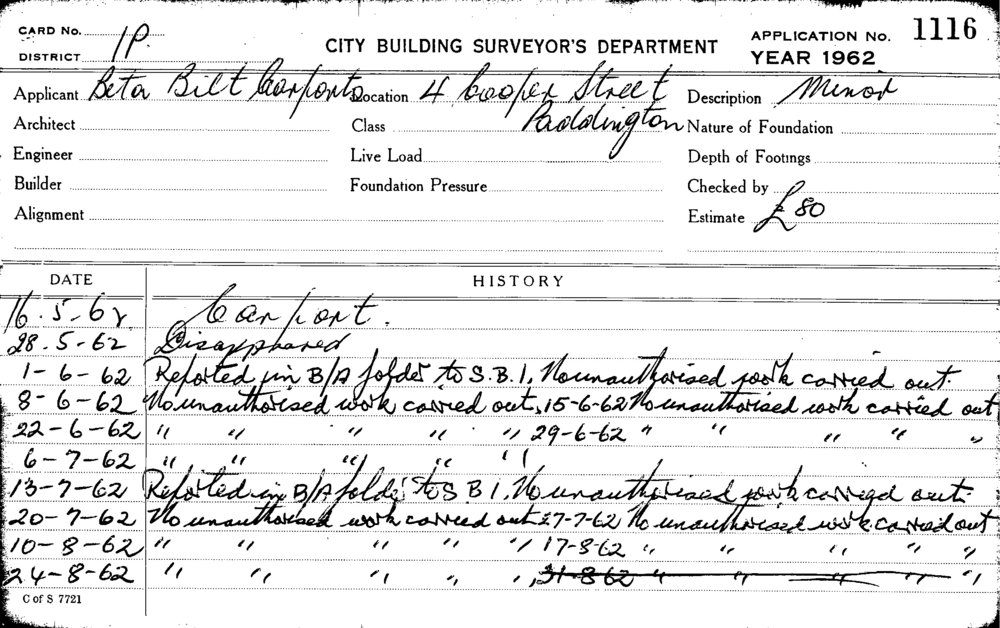 CARD No. 1P. CITY BUILDING SURVEYOR'S DEPARTMENT APPLICATION No. 1116
DISTRICT YEAR 1962
Applicant Beta Bilt Carports Location 4 Cooper Street Description Minor
Architect Class Paddington Nature of Foundation
Engineer Live Load Depth of Footings
Builder Foundation Pressure Checked by
Alignment Estimate £80
DATE HISTORY
16.5.62 Carport.
28.5-62 Disapproved
1-6-62 Reported in B/A folder to S.B.I. No unauthorised work carried out.
8-6-62 No unauthorised work carried out, 15-6-62 No unauthorised work carried out
22-6-62 " " " " " 29-6-62 " " " " "
6-7-62 " " " " "
13-7-62 Reported in B/A folder to S B I. No unauthorised work carried out.
20-7-62 No unauthorised work carried out 27-7-62 No unauthorised work carried out
10-8-62 " " " " " 17-8-62 " " " " "
24-8-62 " " " " ", 31-8-62 " " " " "
C of S 7721